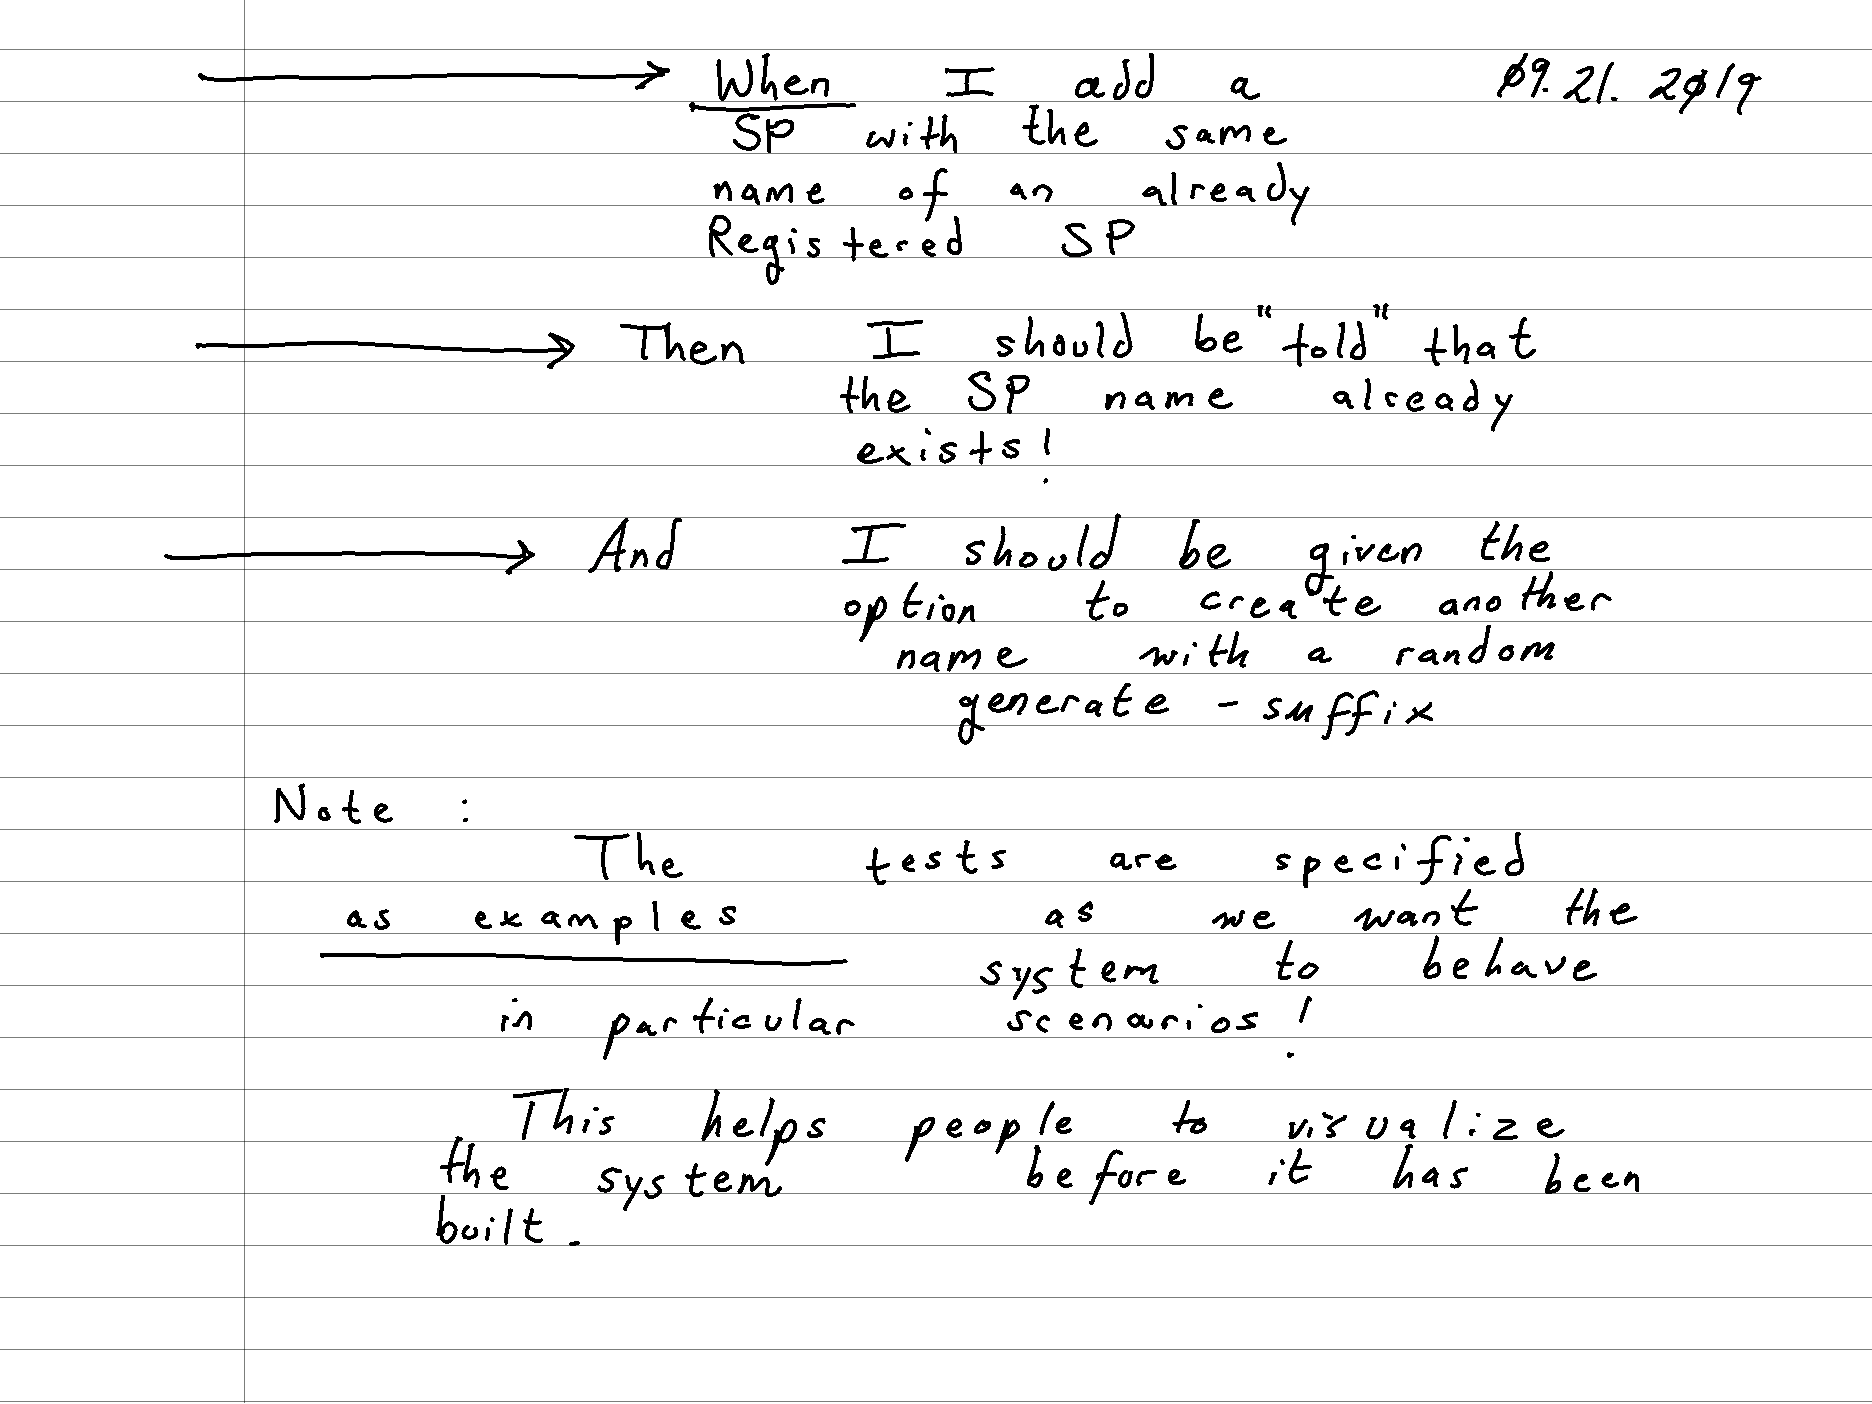 When I add a 09.21.2019
SP with the same
name of an already
Registered SP
Then I should be "told" that
the SP name already
exists!
And I should be given the
option to create another
name with a random
generate - suffix
Note :
The tests are specified
as examples as we want the
system to behave
in particular scenarios!
This helps people to visualize
the system before it has been
built.